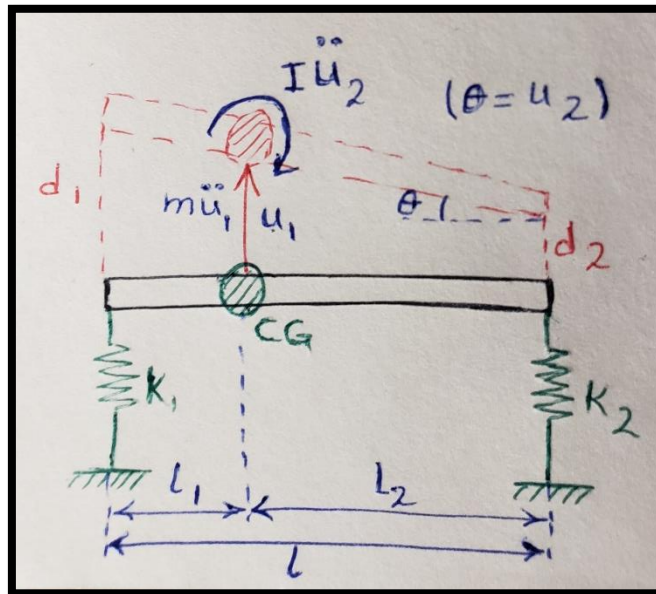 Iü₂
(θ = u₂)
d₁
mü₁
u₁
θ
d₂
CG
K₁
K₂
l₁
l₂
l